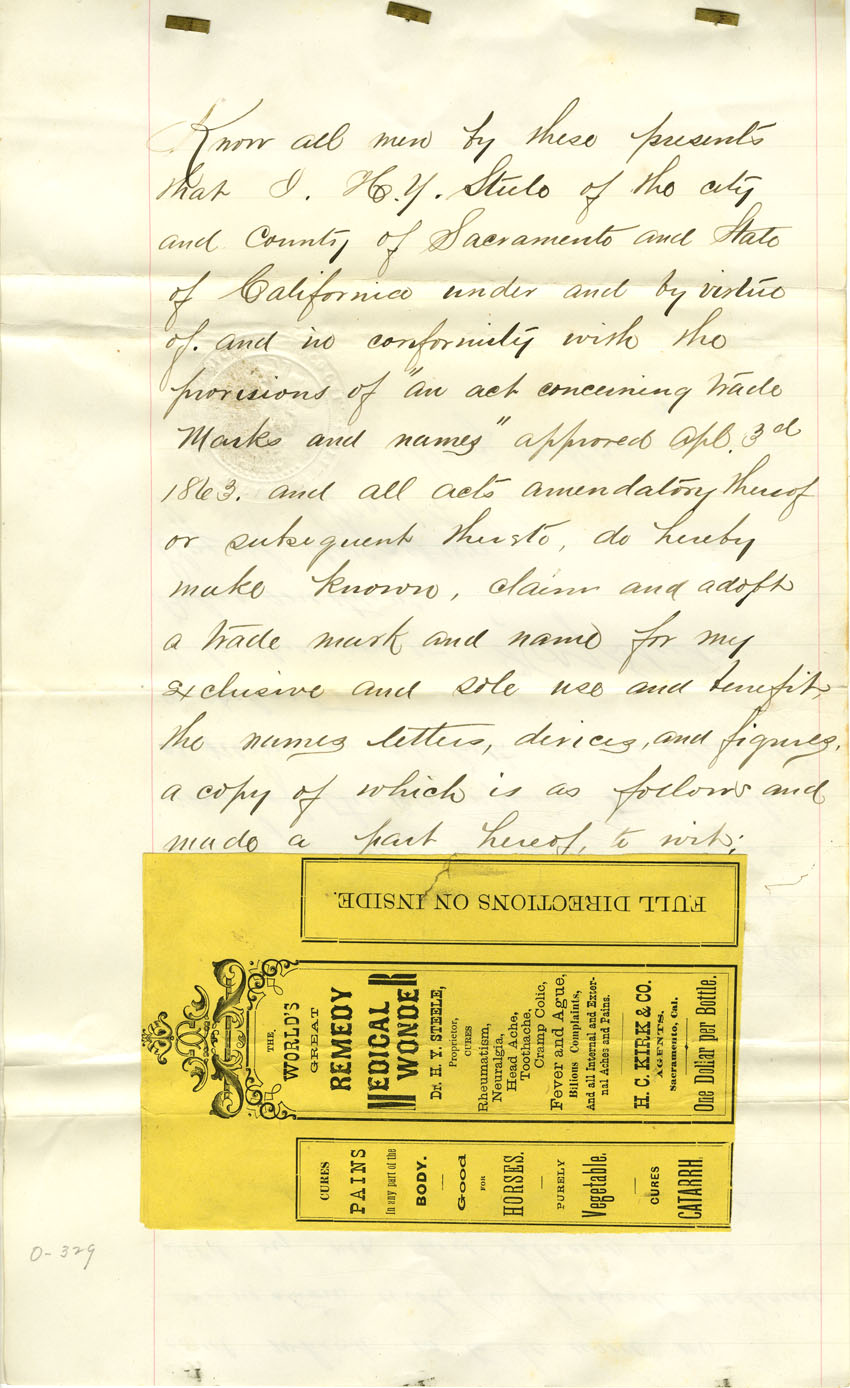 Know all men by these presents
that I. H. Y. Steele of the city
and County of Sacramento and State
of California under and by virtue
of. and in conformity with the
provisions of "an act concerning trade
Marks and names" approved Apl. 3d
1863. and all acts amendatory thereof
or subsequent thereto, do hereby
make known, claim and adopt
a trade mark and name for my
exclusive and sole use and benefit,
the names letters, devices, and figures,
a copy of which is as follows and
made a part hereof, to wit;
FULL DIRECTIONS ON INSIDE.
THE
WORLD'S
GREAT
REMEDY
MEDICAL
WONDER
Dr. H. Y. STEELE,
Proprietor,
CURES
Rheumatism,
Neuralgia,
Head Ache,
Toothache,
Cramp Colic,
Fever and Ague,
Bilious Complaints,
And all Internal and Exter-
nal Aches and Pains.
H. C. KIRK & CO.
AGENTS.
Sacramento, Cal.
One Dollar per Bottle.
CURES
PAINS
In any part of the
BODY.
Good
FOR
HORSES.
PURELY
Vegetable.
CURES
CATARRH.
0-329